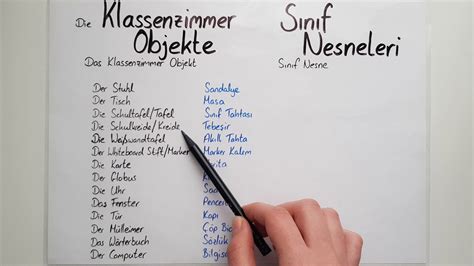 Die Klassenzimmer Objekte
Sınıf Nesneleri
Das Klassenzimmer Objekt
Sınıf Nesne
Der Stuhl Sandalye
Der Tisch Masa
Die Schultafel/Tafel Sınıf Tahtası
Die Schulkreide/Kreide Tebeşir
Die Weißwandtafel Akıllı Tahta
Der Whiteboard Stift/Marker Marker Kalem
Die Karte
Der Globus
Die Uhr
Das Fenster
Die Tür Kapı
Der Mülleimer Çöp
Das Wörterbuch Sözlük
Der Computer